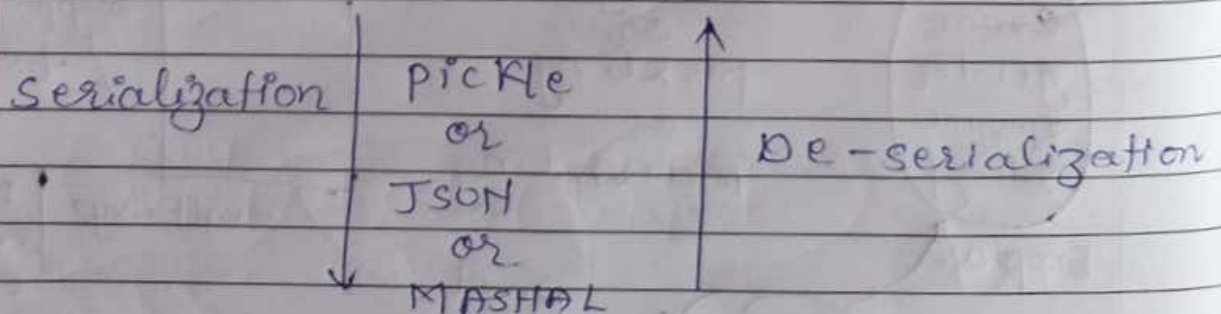 Serialization
Pickle
or
JSON
or
MASHAL
De-serialization